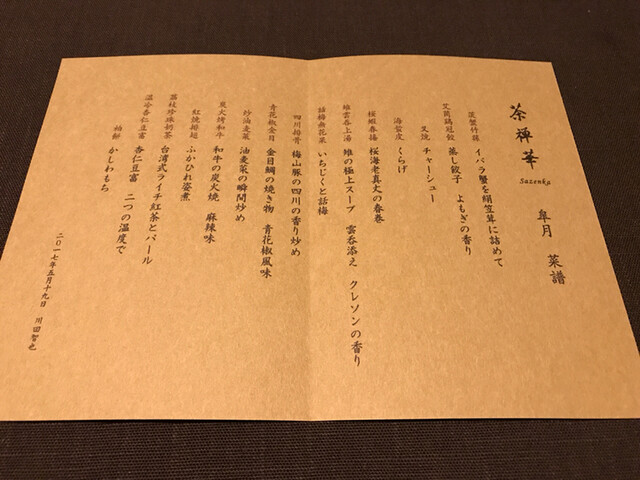 茶禅華 Sazenka
皐月 菜譜
蟹竹蓀 イバラ蟹を絹笠茸に詰めて
冠餃 蒸し餃子 よもぎの香り
叉焼 チャーシュー
海蜇皮 くらげ
桜蝦春捲 桜海老真丈の春巻
雉雲呑上湯 雉の極上スープ 雲呑添え クレソンの香り
話梅無花菓 いちじくと話梅
四川排骨 梅山豚の四川の香り炒め
青花椒金目 金目鯛の焼き物 青花椒風味
炒油麦菜 油麦菜の瞬間炒め
炭火烤和牛 和牛の炭火焼 麻辣味
紅焼排翅 ふかひれ姿煮
茘枝珍珠奶茶 台湾式ライチ紅茶とパール
温冷杏仁豆富 杏仁豆富 二つの温度で
柏餅 かしわもち
二〇一七年五月十九日 川田智也